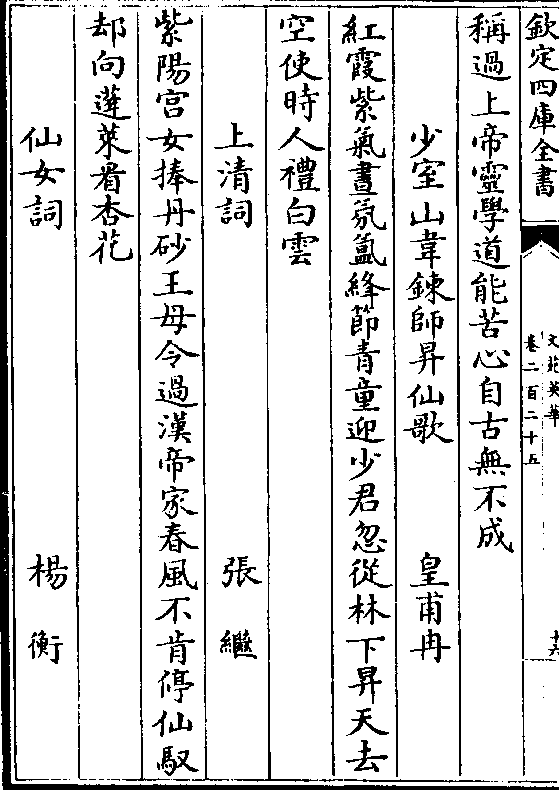 欽定四庫全書
文苑英華
卷二百二十五
十六
稱過上帝靈學道能苦心自古無不成
少室山韋鍊師昇仙歌 皇甫冉
紅霞紫氣晝氛氲絳節青童迎少君忽從林下昇天去
空使時人禮白雲
上清詞 張繼
紫陽宫女捧丹砂王母令過漢帝家春風不肯停仙馭
却向蓬萊看杏花
仙女詞 楊衡